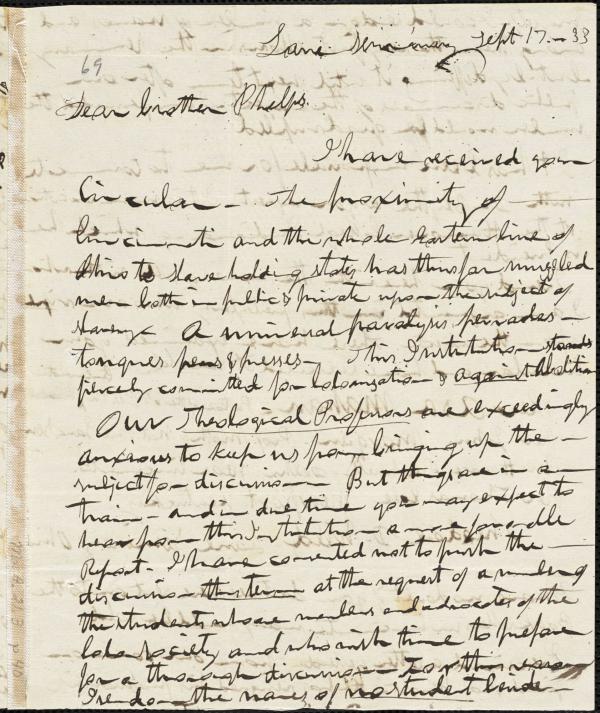 Lane Seminary Sept 17.-33
69
Dear brother Phelps.
I have received your
Circular - The proximity of -
Cincinnati and the whole Eastern line of
Ohio to slave holding states has thus far muzzled
men both in public & private upon the subject of
slavery. A universal paralysis pervades -
tongues pens & presses - This Institution stands
fiercely committed for Colonization & against Abolition
Our Theological Professors are exceedingly
anxious to keep us from bringing up the -
subject for discussion - But things are in a -
train - and in due time you may expect to
hear from this Institution - a more favorable
Report - I have consented not to push the -
discussion this term - at the request of a number of
the students who are members and advocates of the
Colo Society and who wish time to prepare
for a thorough discussion - For this reason
I send on the names of no student beside -